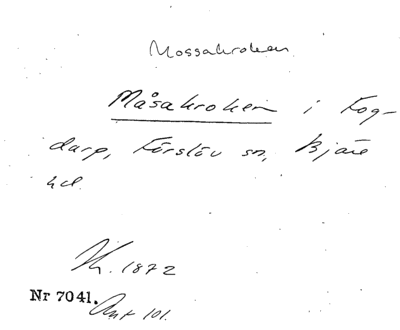 Mossakroken
Måsakroken i Fog-
darp, Förslöv sn, Bjäre
hd.
Kr. 1872
Nr 7041. Ant 101.